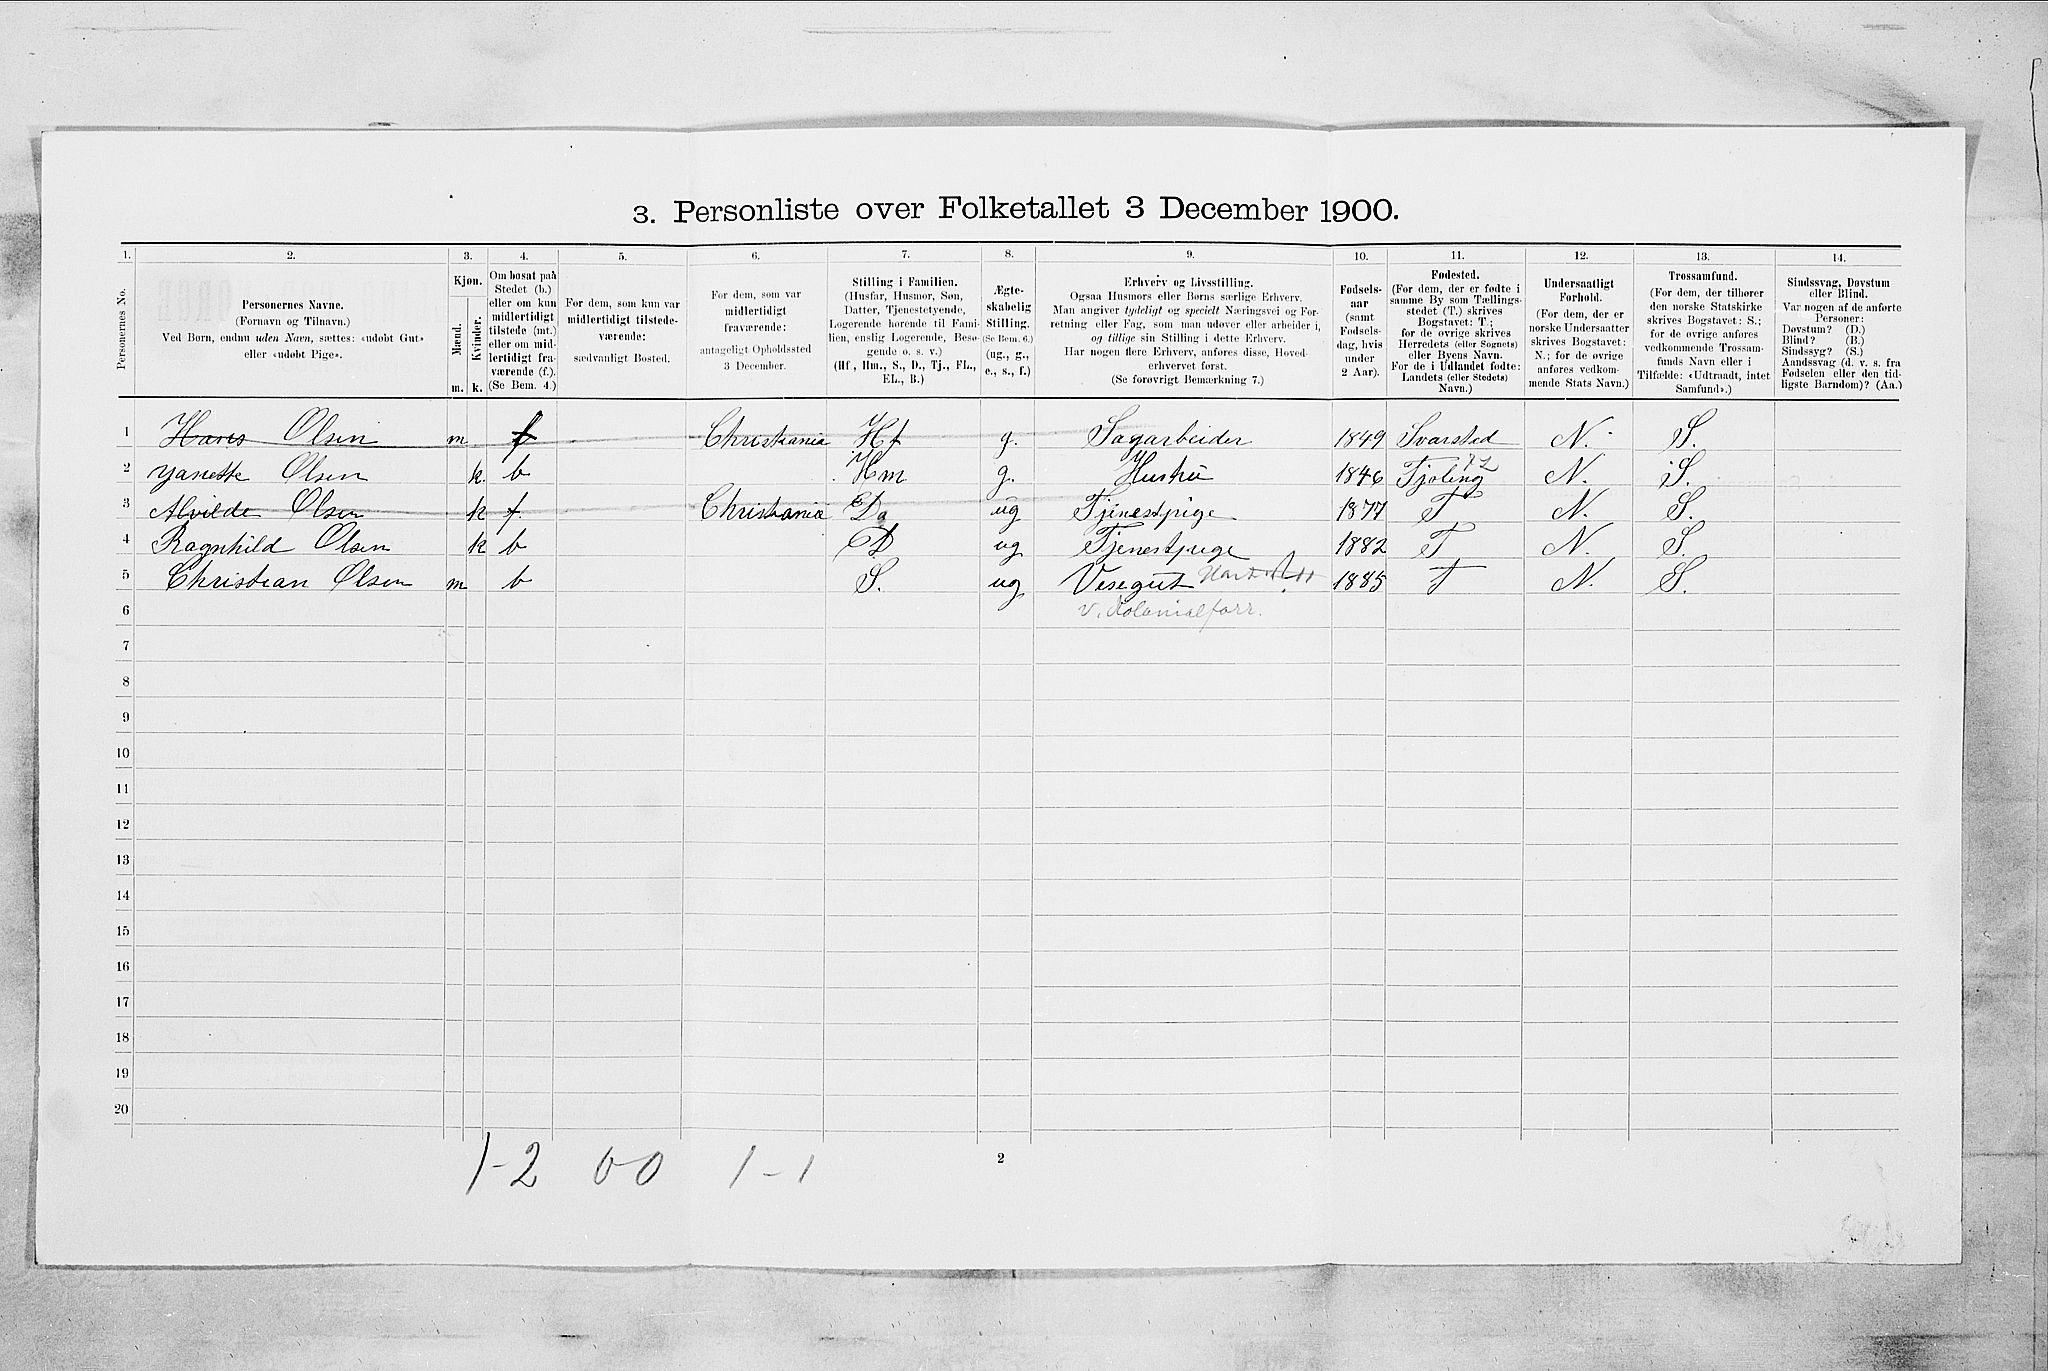 3. Personliste over Folketallet 3 December 1900.
1. 2. 3. 4. 5. 6. 7. 8. 9. 10. 11. 12. 13. 14.
Personernes No.
Personernes Navne.
(Fornavn og Tilnavn.)
Ved Børn, endnu uden Navn, sættes: «udøbt Gut»
eller «udøbt Pige».
Kjøn.
Mænd.
Kvinder.
m. k.
Om bosat paa
Stedet (b.)
eller om kun
midlertidigt
tilstede (mt.)
eller om mid-
lertidigt fra-
værende (f.).
(Se Bem. 4.)
For dem, som kun var
midlertidigt tilstede-
værende:
sædvanligt Bosted.
For dem, som var
midlertidigt
fraværende:
antageligt Opholdssted
3 December.
Stilling i Familien.
(Husfar, Husmor, Søn,
Datter, Tjenestetyende,
Logerende hørende til Fami-
lien, enslig Logerende, Besø-
gende o. s. v.)
(Hf., Hm., S., D., Tj., FL.,
EL., B.)
Ægte-
skabelig
Stilling.
(Se Bem. 6.)
(ug., g.,
e., s., f.)
Erhverv og Livsstilling.
Ogsaa Husmors eller Børns særlige Erhverv.
Man angiver tydeligt og specielt Næringsvei og For-
retning eller Fag, som man udøver eller arbeider i,
og tillige sin Stilling i dette Erhverv.
Har nogen flere Erhverv, anføres disse, Hoved-
erhvervet først.
(Se forøvrigt Bemærkning 7.)
Fødsels-
aar
(samt
Fødsels-
dag, hvis
under
2 Aar).
Fødested.
(For dem, der er fødte i
samme By som Tællings-
stedet (T.) skrives
Bogstavet: T.;
for de øvrige skrives
Herredets (eller Sognets)
eller Byens Navn.
For de i Udlandet fødte:
Landets (eller Stedets)
Navn.)
Undersaatligt
Forhold.
(For dem, der er
norske Undersaatter
skrives Bogstavet:
N.; for de øvrige
anføres vedkom-
mende Stats Navn.)
Trossamfund.
(For dem, der tilhører
den norske Statskirke
skrives Bogstavet: S.;
for de øvrige anføres
vedkommende Trossam-
funds Navn eller i
Tilfælde: «Udtraadt, intet
Samfund».)
Sindssvag, Døvstum
eller Blind.
Var nogen af de anførte
Personer:
Døvstum? (D.)
Blind? (B.)
Sindssyg? (S.)
Aandssvag (d. v. s. fra
Fødselen eller den tid-
ligste Barndom)? (Aa.)
1 Hans Olsen m. f Christiania Hf g. Sagarbeider 1849 Svarstad N. S.
2 Janette Olsen k. b Hm g. Hustru 1846 Tjøling N. S.
3 Alvilde Olsen k f Christiania D ug Tjenestpige 1877 T N. S.
4 Ragnhild Olsen k b D ug Tjenestpige 1882 T N. S.
5 Christian Olsen m b S. ug Visegut 1885 T N. S.
6 v. Kolonialforr.
7
8
9
10
11
12
13
14
15
16
17
18
19
20
1-2 0-0 1-1
2